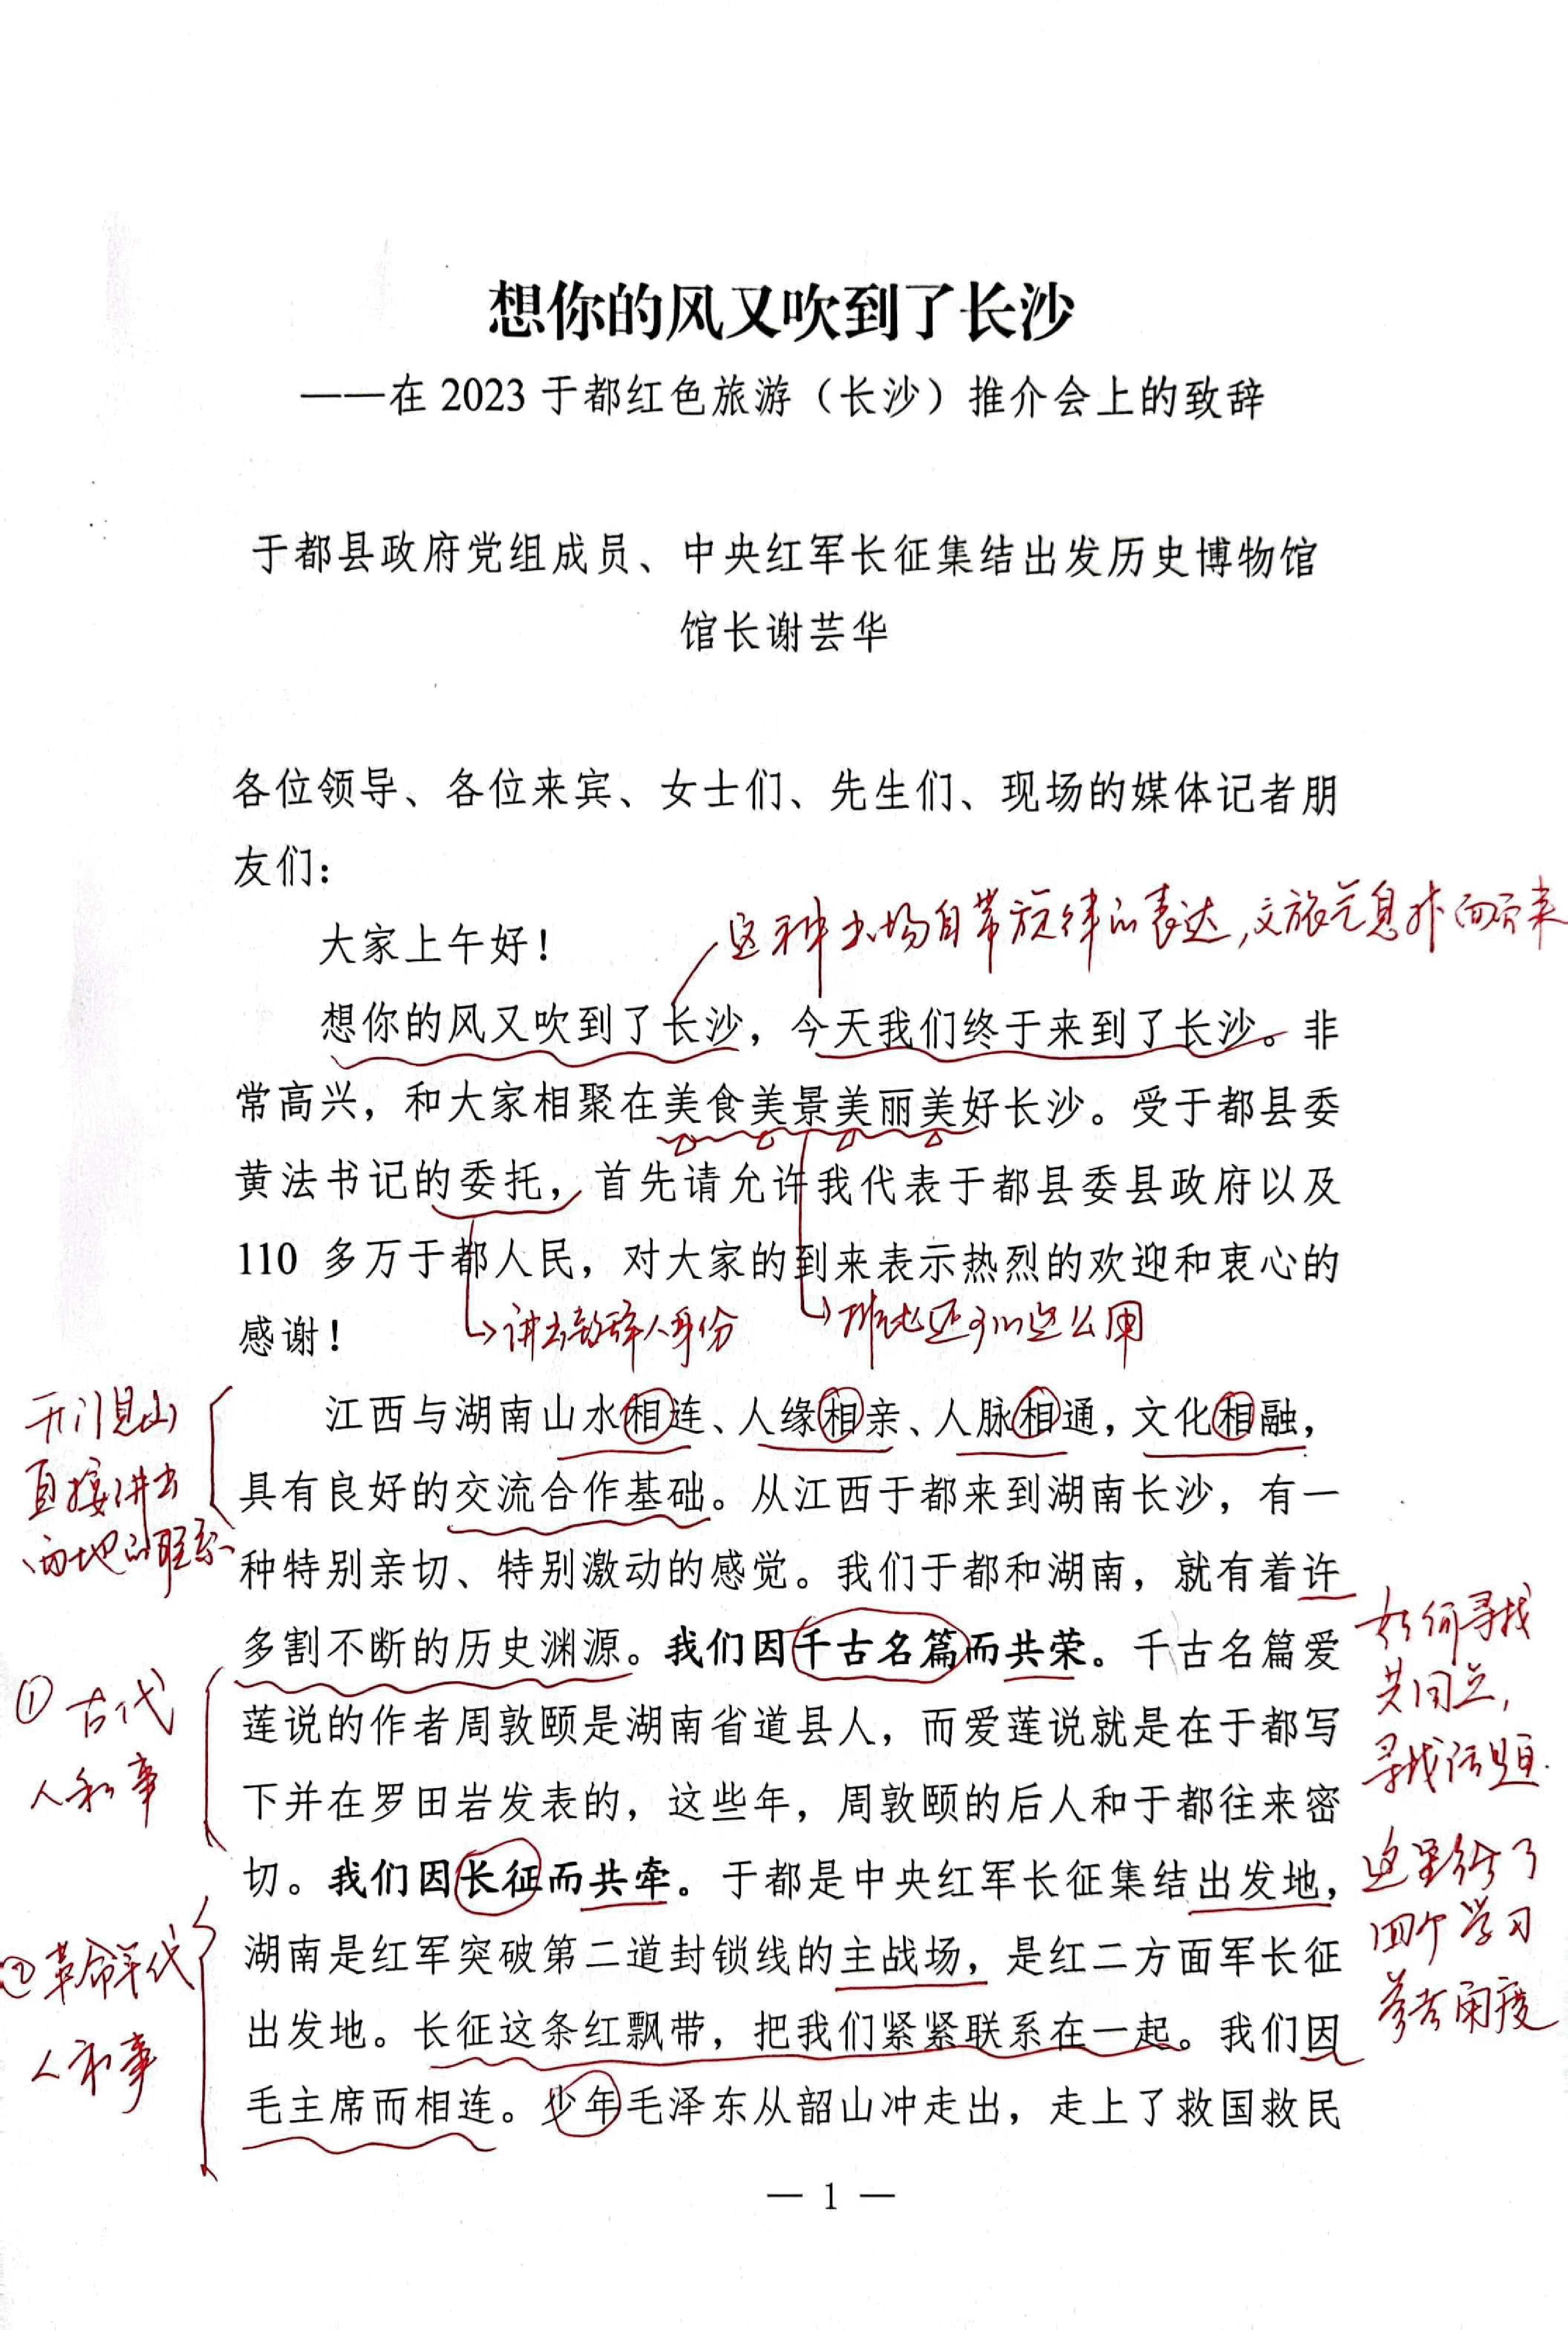 想你的风又吹到了长沙
——在 2023 于都红色旅游（长沙）推介会上的致辞
于都县政府党组成员、中央红军长征集结出发历史博物馆
馆长谢芸华
各位领导、各位来宾、女士们、先生们、现场的媒体记者朋
友们：
大家上午好！
这种出场自带旋律的表达,文旅气息扑面而来
想你的风又吹到了长沙，今天我们终于来到了长沙。非
常高兴，和大家相聚在美食美景美丽美好长沙。受于都县委
黄法书记的委托，首先请允许我代表于都县委县政府以及
110 多万于都人民，对大家的到来表示热烈的欢迎和衷心的
感谢！
讲出致辞人身份
排比还可以这么用
开门见山
直接讲出
两地的联系
江西与湖南山水相连、人缘相亲、人脉相通，文化相融，
具有良好的交流合作基础。从江西于都来到湖南长沙，有一
种特别亲切、特别激动的感觉。我们于都和湖南，就有着许
多割不断的历史渊源。我们因千古名篇而共荣。千古名篇爱
莲说的作者周敦颐是湖南省道县人，而爱莲说就是在于都写
下并在罗田岩发表的，这些年，周敦颐的后人和于都往来密
切。我们因长征而共牵。于都是中央红军长征集结出发地，
湖南是红军突破第二道封锁线的主战场，是红二方面军长征
出发地。长征这条红飘带，把我们紧紧联系在一起。我们因
毛主席而相连。少年毛泽东从韶山冲走出，走上了救国救民
① 古代
人和事
②革命年代
人和事
如何寻找
共同点,
寻找话题.
这里给了
四个学习
参考角度
— 1 —